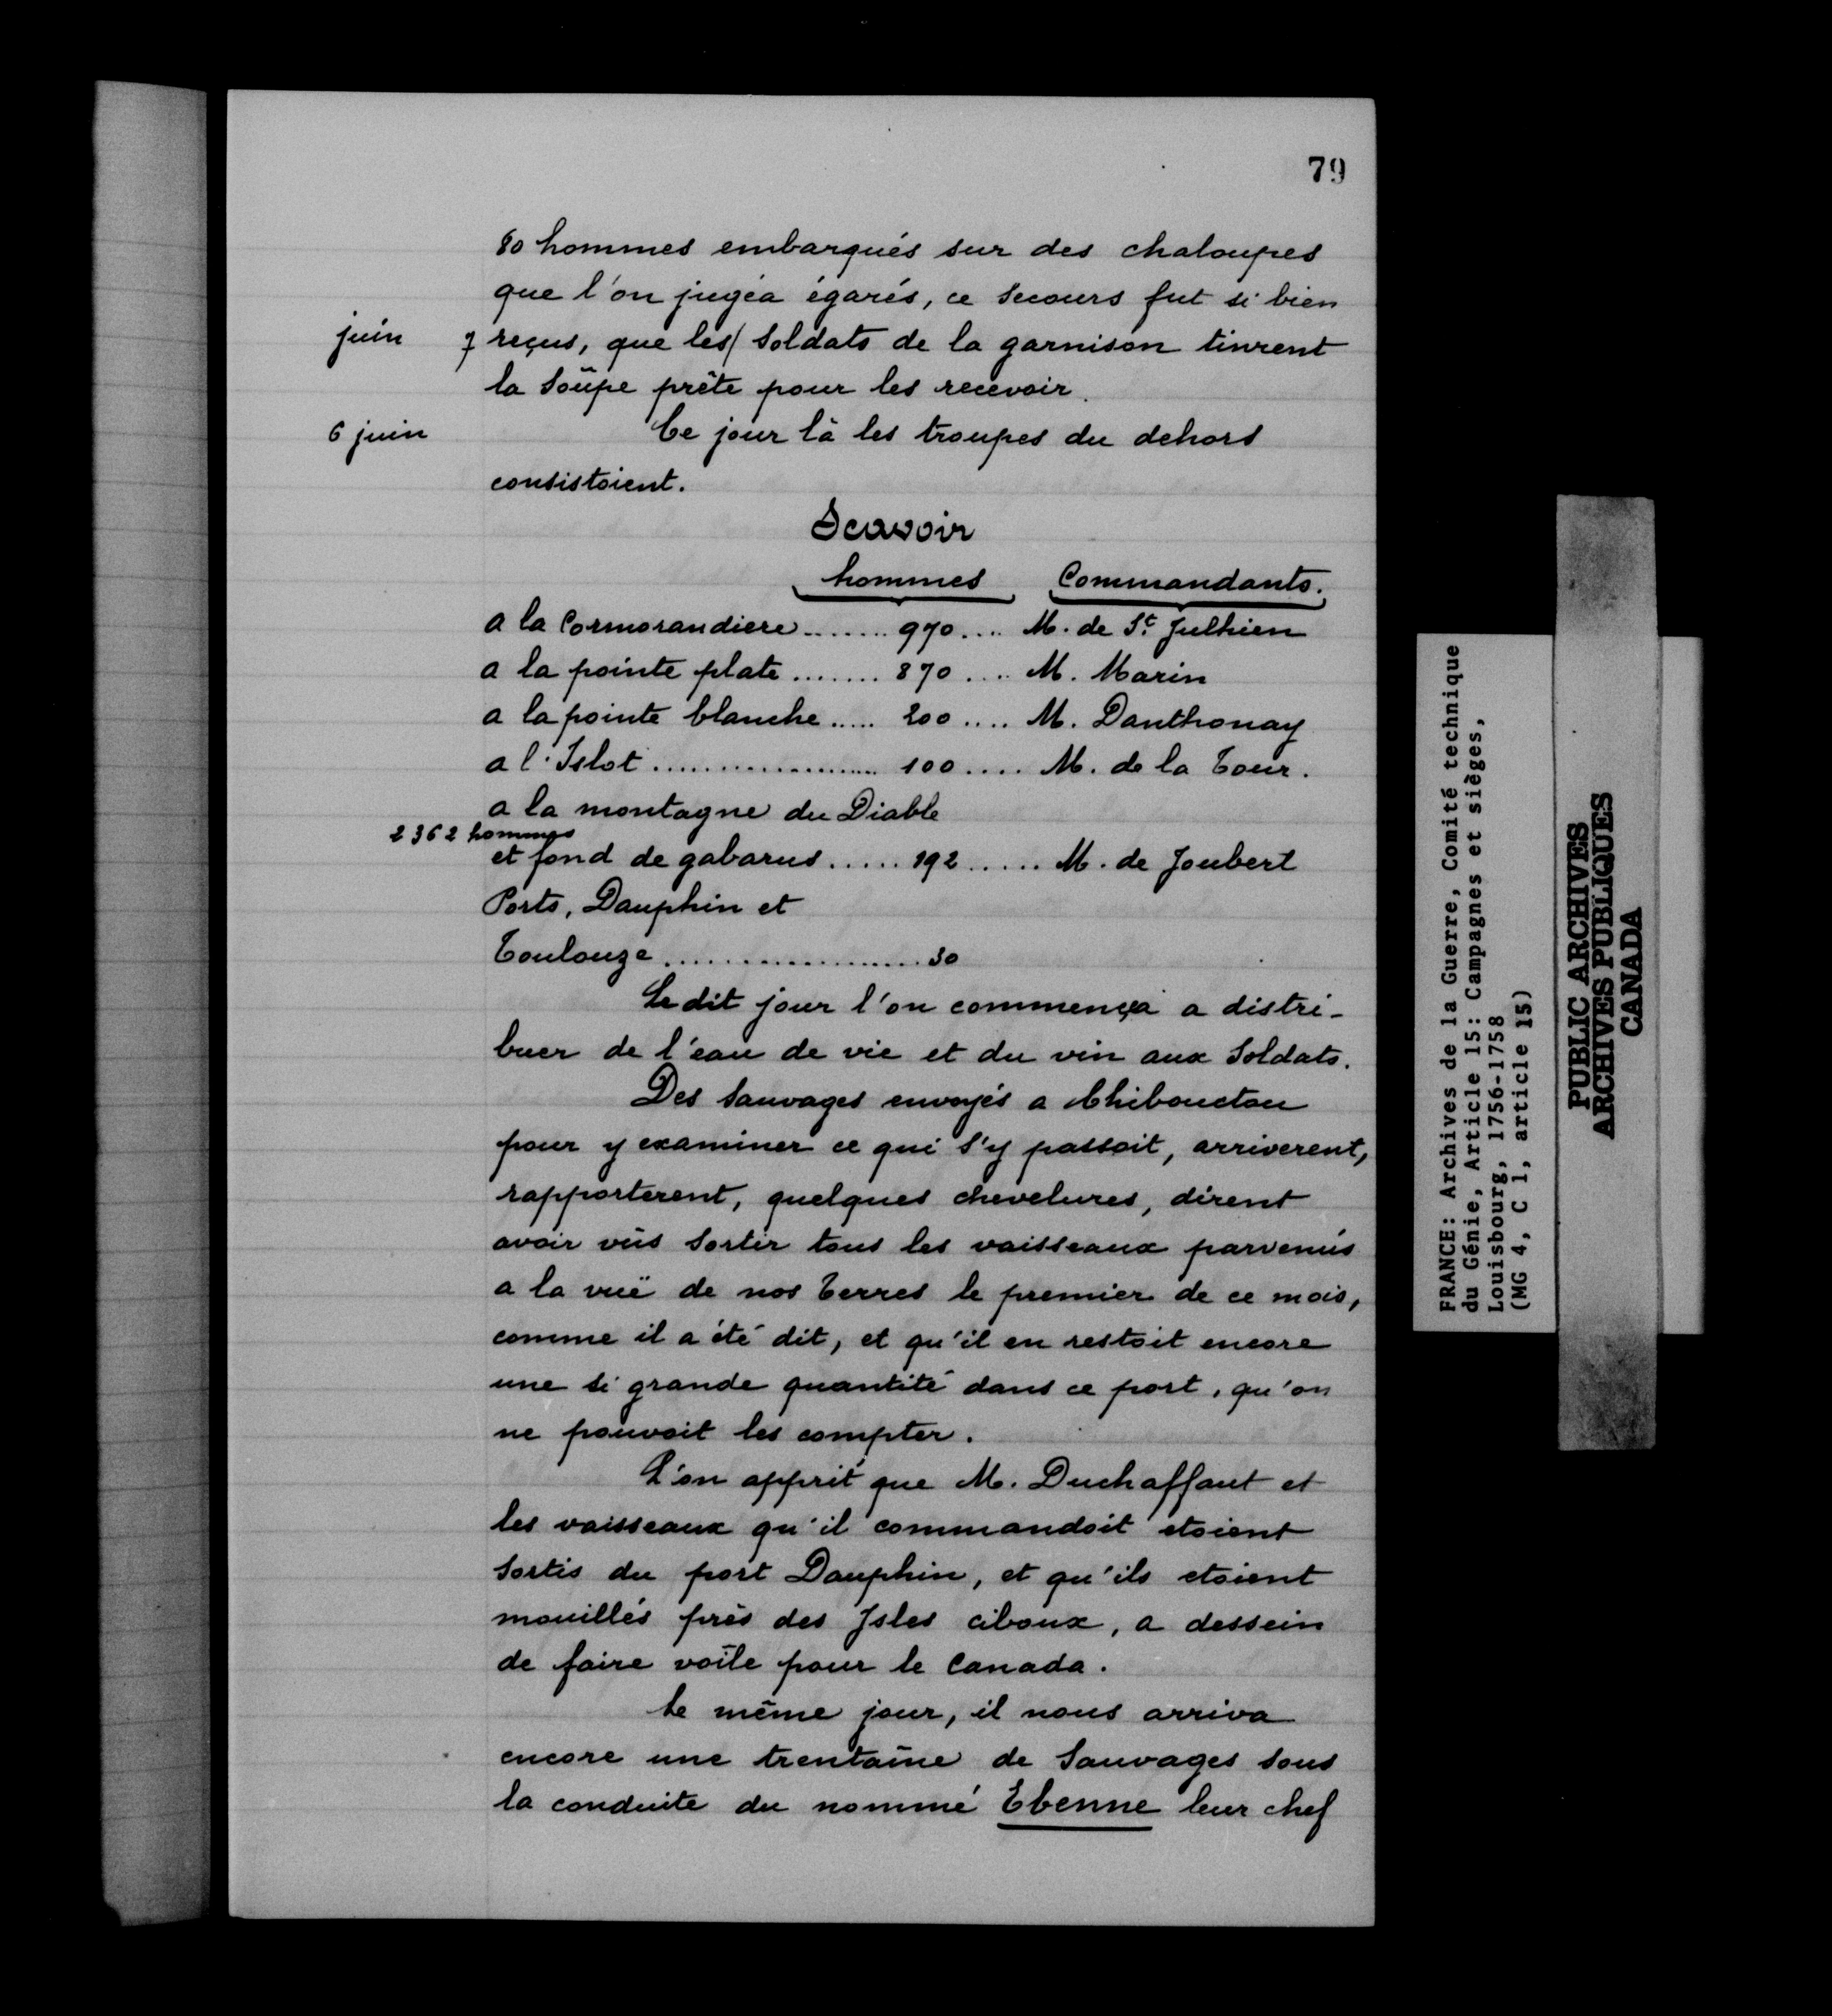 79
80 hommes embarqués sur des chaloupes
que l'on jugéa égarés, ce secours fut si bien
juin 7 reçus, que les/ soldats de la garnison tinrent
la soûpe prête pour les recevoir.
6 juin Ce jour là les troupes du dehors
consistoient.
Scavoir
hommes Commandants.
a la Cormorandiere ....... 970 .... M. de St. Julhien
a la pointe plate ....... 870 .... M. Marin
a la pointe blanche ..... 200 .... M. Danthonay
a l'Islot .................... 100 .... M. de la Tour.
a la montagne du Diable
2362 hommes
et fond de gabarus ..... 192 ..... M. de Joubert
Ports, Dauphin et
Toulouze .................... 30
Le dit jour l'on commença a distri-
buer de l'eau de vie et du vin aux soldats.
Des sauvages envoyés a Chibouctou
pour y examiner ce qui s'y passoit, arriverent,
rapporterent, quelques chevelures, dirent
avoir vûs sortir tous les vaisseaux parvenus
a la vuë de nos terres le premier de ce mois,
comme il a été dit, et qu'il en restoit encore
une si grande quantité dans ce port, qu'on
ne pouvoit les compter.
L'on apprit que M. Duchaffaut et
les vaisseaux qu'il commandoit etoient
sortis du port Dauphin, et qu'ils etoient
mouillés près des Isles ciboux, a dessein
de faire voile pour le Canada.
Le même jour, il nous arriva
encore une trentaine de Sauvages sous
la conduite du nommé Ebenne leur chef
FRANCE: Archives de la Guerre, Comité technique
du Génie, Article 15: Campagnes et sièges,
Louisbourg, 1756-1758
(MG 4, C 1, article 15)
PUBLIC ARCHIVES
ARCHIVES PUBLIQUES
CANADA